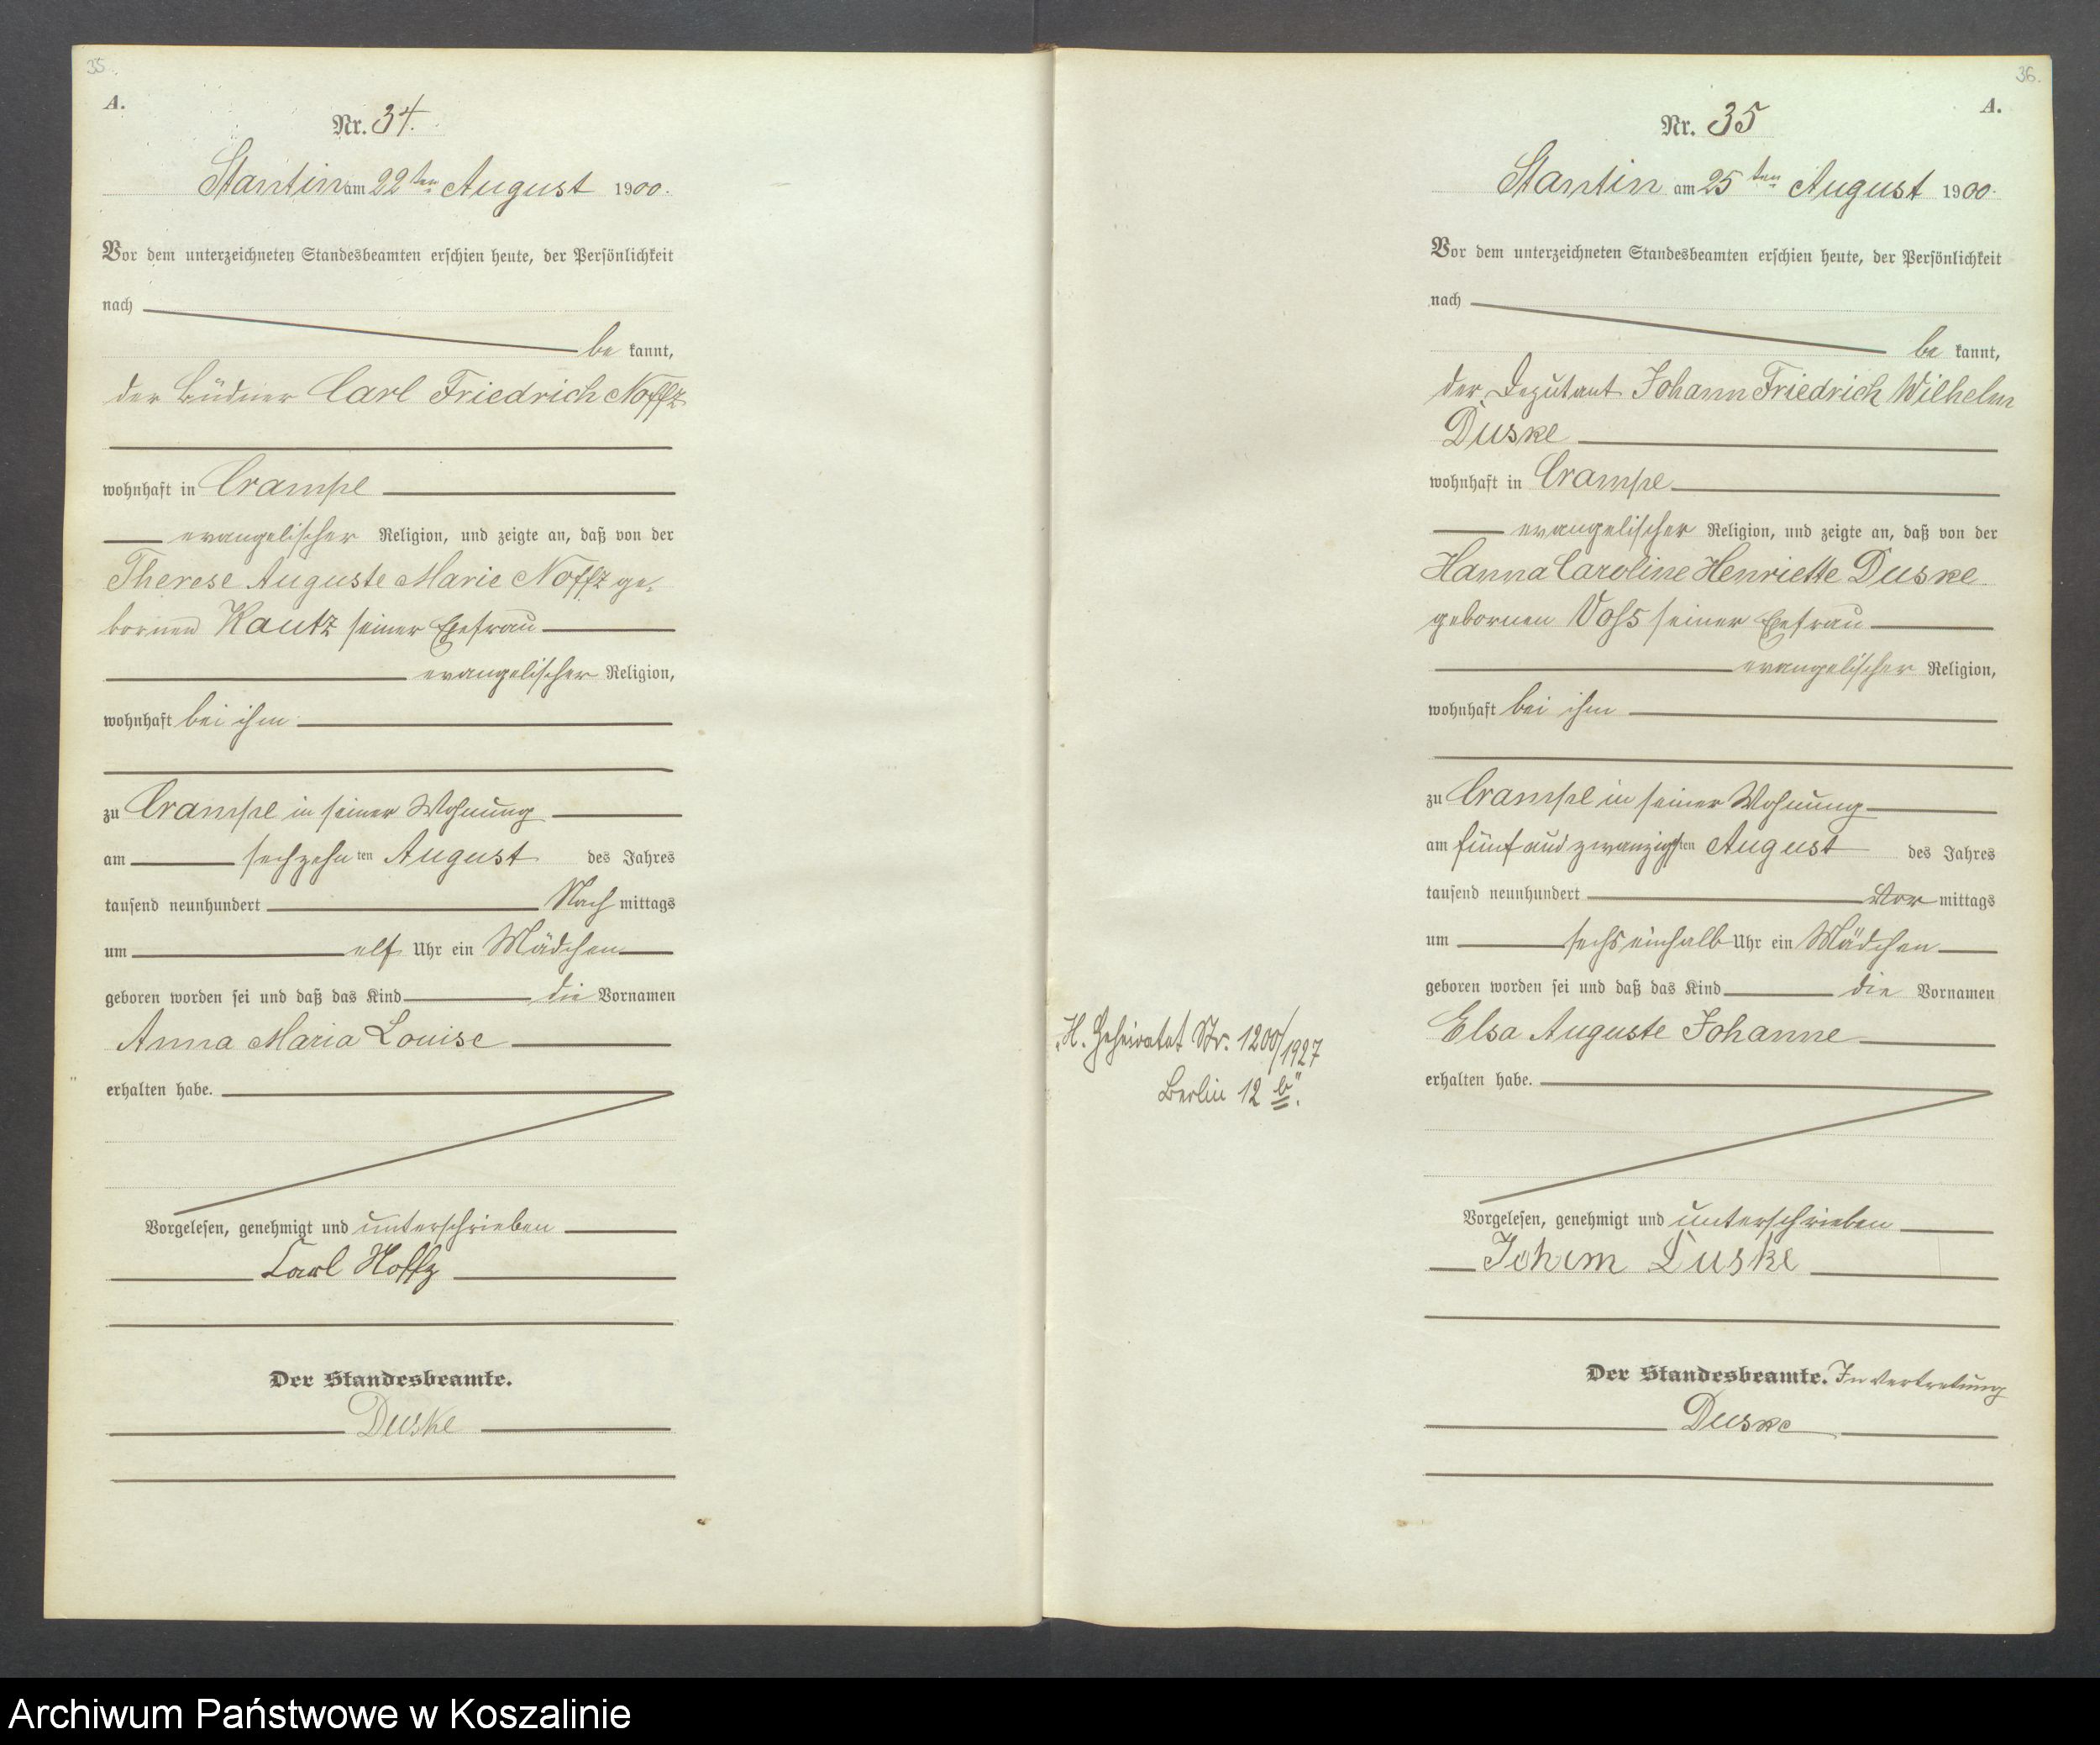 35.
A.
Nr. 34.
Stantin am 22ten August 1900.
Vor dem unterzeichneten Standesbeamten erschien heute, der Persönlichkeit
nach
be kannt,
der Büdner Carl Friedrich Noffz
wohnhaft in Crampe
evangelischer Religion, und zeigte an, daß von der
Therese Auguste Marie Noffz ge-
bornen Kautz seiner Ehefrau
evangelischer Religion,
wohnhaft bei ihm
zu Crampe in seiner Wohnung
am sechzehnten August des Jahres
tausend neunhundert Nach mittags
um elf Uhr ein Mädchen
geboren worden sei und daß das Kind die Vornamen
Anna Maria Louise
erhalten habe.
Vorgelesen, genehmigt und unterschrieben
Carl Noffz
Der Standesbeamte.
Duske
36.
A.
Nr. 35
Stantin am 25ten August 1900.
Vor dem unterzeichneten Standesbeamten erschien heute, der Persönlichkeit
nach
be kannt,
der Deputant Johann Friedrich Wilhelm
Duske
wohnhaft in Crampe
evangelischer Religion, und zeigte an, daß von der
Hanna Caroline Henriette Duske
gebornen Voss seiner Ehefrau
evangelischer Religion,
wohnhaft bei ihm
zu Crampe in seiner Wohnung
am fünf und zwanzigsten August des Jahres
tausend neunhundert Vor mittags
um sechs einhalb Uhr ein Mädchen
geboren worden sei und daß das Kind die Vornamen
Elsa Auguste Johanne
erhalten habe.
„H. Geheiratet Nr. 1200/1927
Berlin 12 b".
Vorgelesen, genehmigt und unterschrieben
Johann Duske
Der Standesbeamte. In Vertretung
Duske
Archiwum Państwowe w Koszalinie